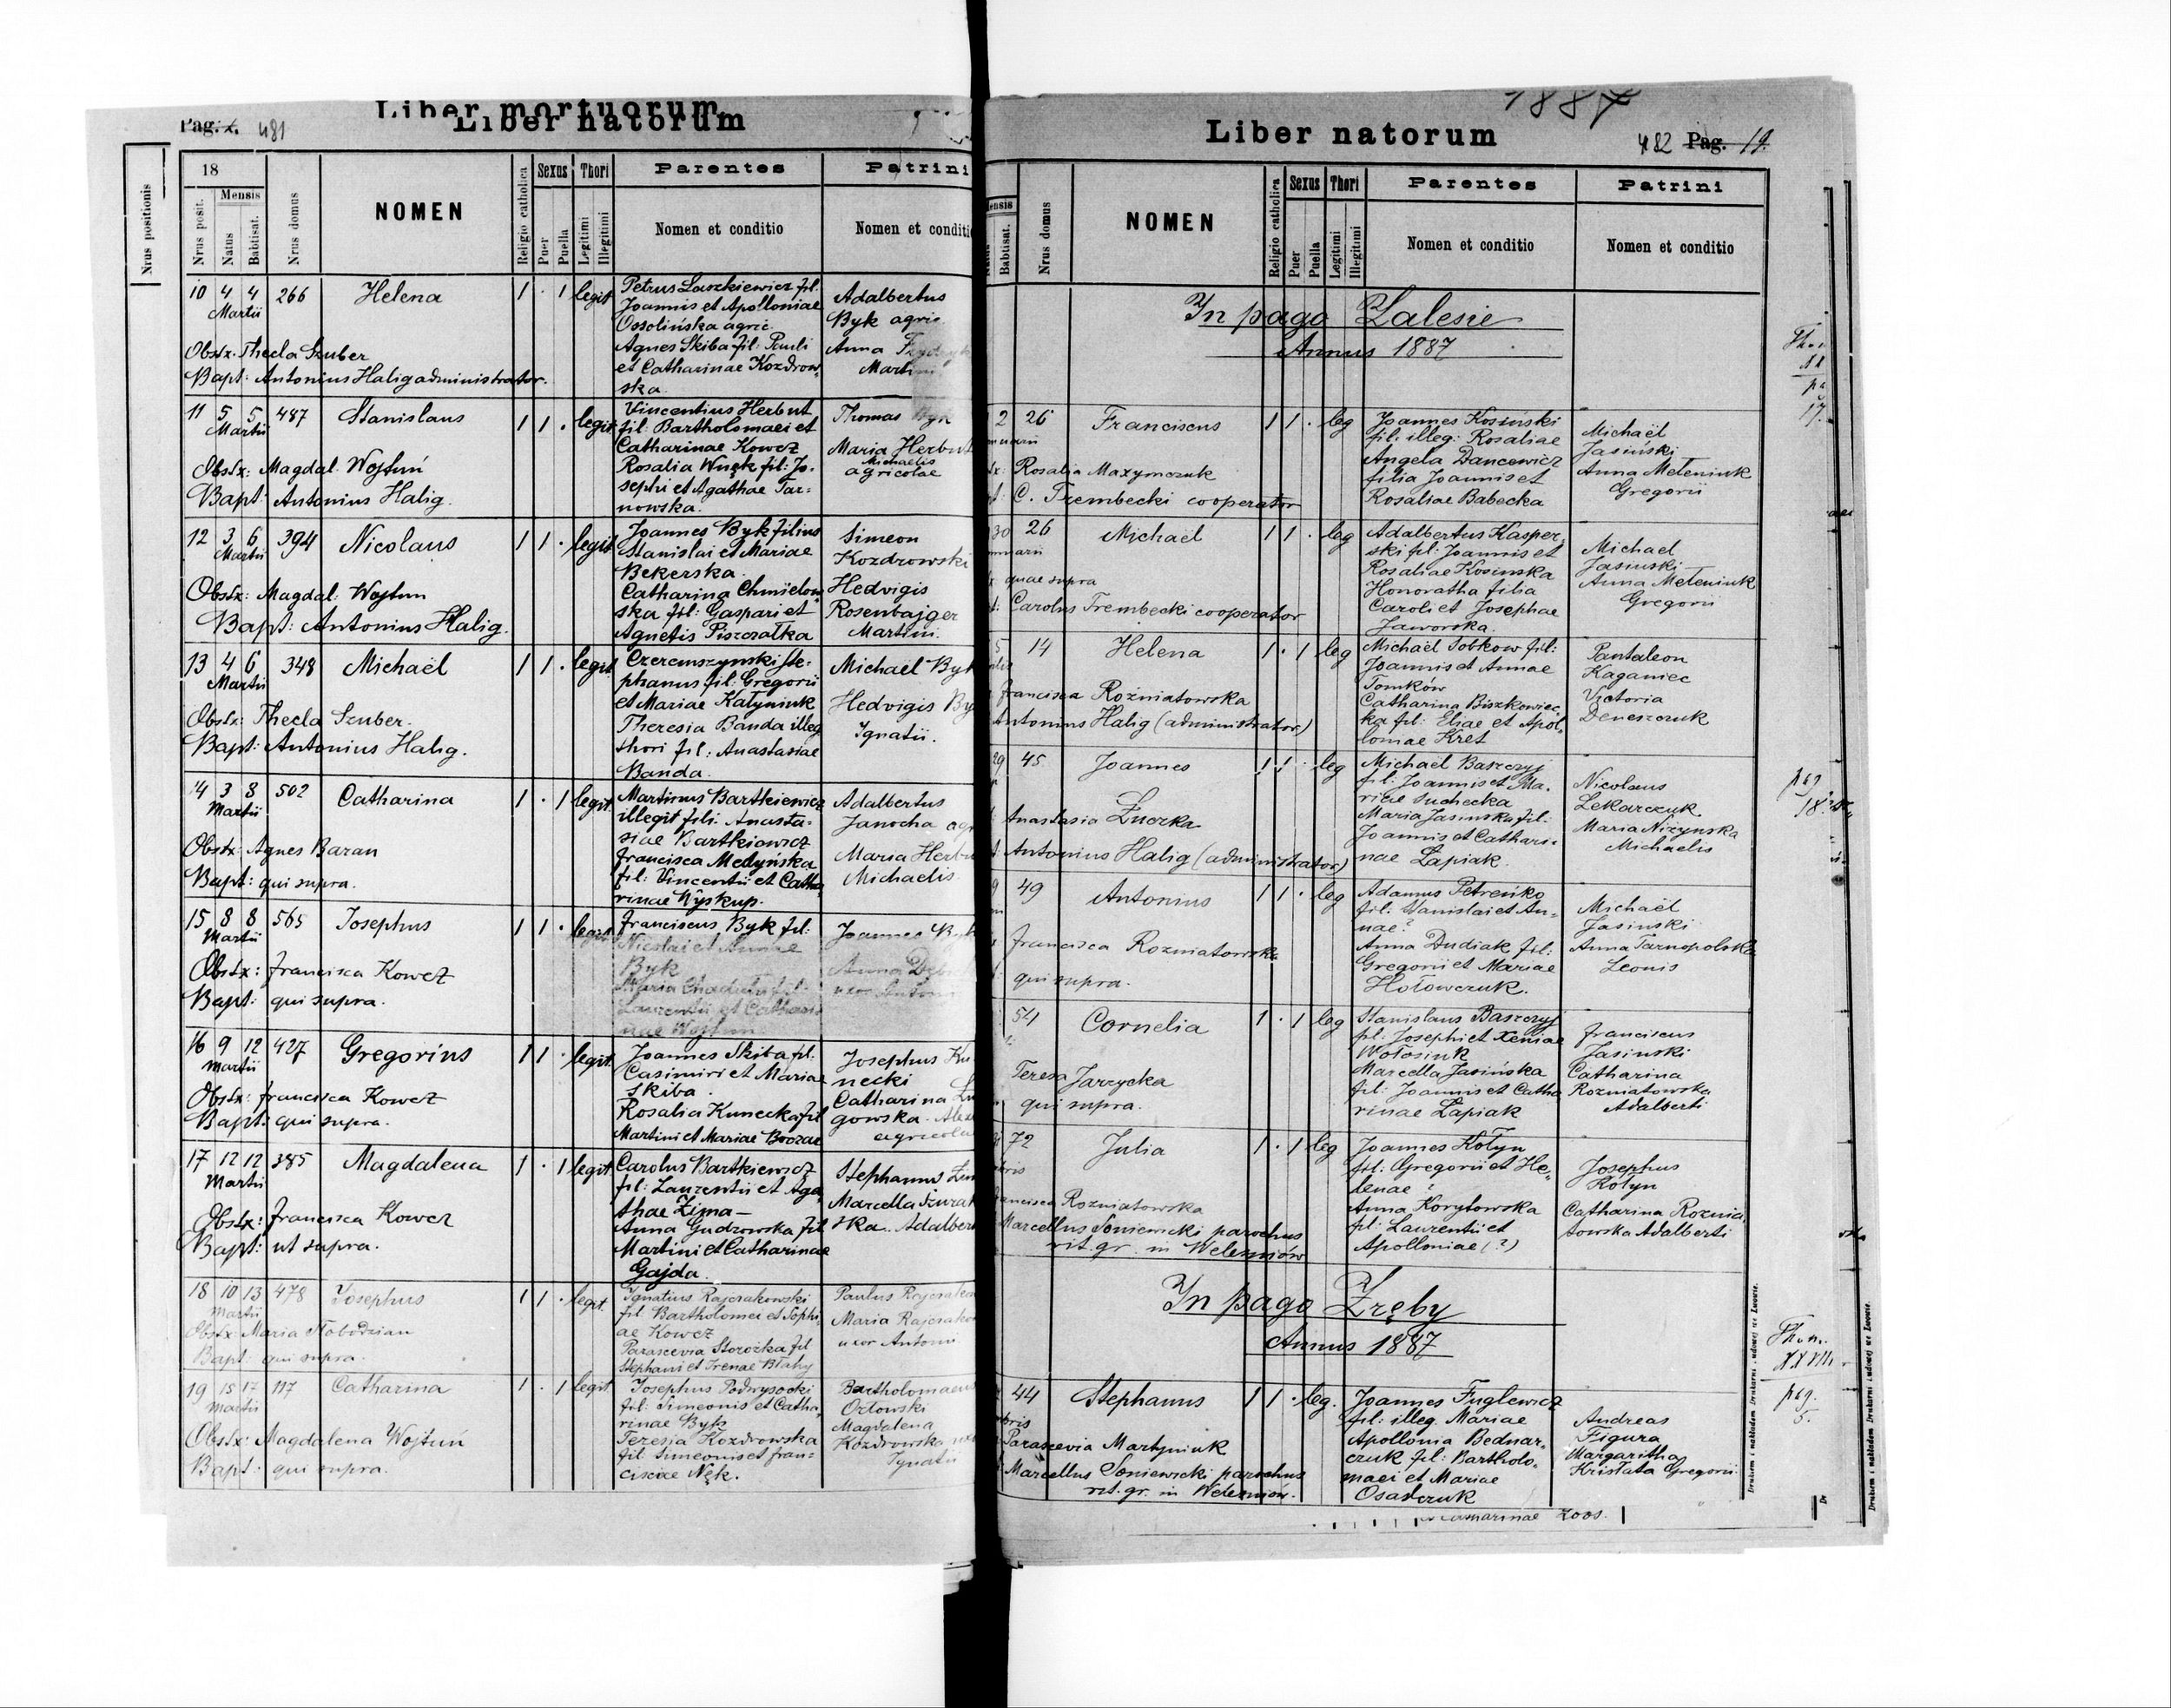 Liber mortuorum
Pag. 481
Liber natorum
Nrus positionis
18
Nrus posit.
Mensis
Natus
Babtisat.
Nrus domus
NOMEN
Religio catholica
Sexus
Puer
Puella
Thori
Legitimi
Illegitimi
Parentes
Nomen et conditio
Patrini
Nomen et conditi
10 4 4 266 Helena 1 · 1 legit
Martii
Obstx. Thecla Szuber
Bapt: Antonius Halig administrator.
Petrus Laszkiewicz fil.
Joannis et Apolloniae
Ossolińska agric.
Agnes Skiba fil: Pauli
et Catharinae Kozdrow-
ska.
Adalbertus
Byk agric.
Anna
Marti
11 5 5 487 Stanislaus 1 1 · legit
Martii
Obstx: Magdal. Wojtuń
Bapt: Antonius Halig.
Vincentius Herbut
fil: Bartholomaei et
Catharinae Kowcz
Rosalia Wnęk fil: Jo-
sephi et Agathae Tar-
nowska.
Thomas Byk
Maria Herbut
Michaelis
agricolae
12 3 6 394 Nicolaus 1 1 · legit
Martii
Obstx: Magdal: Wojtun
Bapt: Antonius Halig.
Joannes Byk filius
Stanislai et Mariae
Bekerska.
Catharina Chmielow
ska fil: Gaspari et
Agnetis Piszczatka
Simeon
Kozdrowski
Hedvigis
Rosenbajger
Martini.
13 4 6 348 Michaël 1 1 · legit
Martii
Obstx: Thecla Szuber.
Bapt: Antonius Halig.
Czeremszynski Ste-
phanus fil: Gregorii
et Mariae Katyniuk
Theresia Banda illeg
thori fil: Anastasiae
Banda.
Michaël Byk
Hedvigis By
Ignatii.
14 3 8 502 Catharina 1 · 1 legit
Martii
Obstx: Agnes Baran
Bapt: qui supra.
Martinus Bartkiewicz
illegit fili. Anasta-
siae Bartkiewicz
Francisca Medyńska
fil: Vincentii et Catha
rinae Wyskup.
Adalbertus
Janocha agr
Maria Herbu
Michaelis
15 8 8 565 Josephus 1 1 · legit
Martii
Obstx: Francisca Kowcz
Bapt: qui supra.
Franciscus Byk fil:
Nicolai et Annae
Byk
Maria
Laurentii et Cathari
nae Wojtun
Joannes Byk
Anna
uxor Antoni
16 9 12 427 Gregorius 1 1 · legit.
Martii
Obstx: Francisca Kowcz
Bapt: qui supra.
Joannes Skiba fil:
Casimiri et Mariae
Skiba.
Rosalia Kunecka fil
Martini et Mariae
Josephus Ku
necki
Catharina
gowska. Alex
agricola
17 12 12 385 Magdalena 1 · 1 legit.
Martii
Obstx: Francisca Kowcz
Bapt: ut supra.
Carolus Bartkiewicz
fil: Laurentii et Aga
thae Zima —
Anna Gudzowska fil
Martini et Catharinae
Gajda.
Stephanus Zim
Marcella Szurat
ska. Adalber
18 10 13 478 Josephus 1 1 · legit.
Martii
Obstx. Maria Słobodzian
Bapt: qui supra.
Ignatius Rajczakowski
fil Bartholomei et Sophi-
ae Kowcz
Parascevia Storozka fil
Stephani et Irenae Błahy
Paulus Rajczakow
Maria Rajczako
uxor Antoni
19 15 17 117 Catharina 1 · 1 legit.
Martii
Obstx: Magdalena Wojtuń
Bapt: qui supra.
Josephus Podwysocki
fil: Simeonis et Catha-
rinae Byk
Teresia Kozdrowska
fil Simeonis et Fran-
ciscae Nęk.
Bartholomaeus
Orłowski
Magdalena
Kozdrowska
Ignatii
1887
Liber natorum
482 Pag. 19.
ensis
Babtisat.
Nrus domus
NOMEN
Religio catholica
Sexus
Puer
Puella
Thori
Legitimi
Illegitimi
Parentes
Nomen et conditio
Patrini
Nomen et conditio
In pago Zalesie
Annus 1887
2 26 Franciscus 1 1 · leg
Rosalia Maxymczuk
C. Trembecki cooperator
Joannes Kosiński
fil. illeg: Rosaliae
Angela Dancewicz
filia Joannis et
Rosaliae Babecka
Michaël
Jasiński
Anna Meteniuk
Gregorii
30 26 Michaël 1 1 · leg
quae supra
Carolus Trembecki cooperator
Adalbertus Kasper-
ski fil: Joannis et
Rosaliae Kosinska
Honoratha filia
Caroli et Josephae
Jaworska.
Michael
Jasinski
Anna Meteniuk
Gregorii
5 14 Helena 1 · 1 leg
Francisca Rozniatowska
Antonius Halig (administrator)
Michaël Sobkow fil:
Joannis et Annae
Tomków
Catharina Biszkowiec-
ka fil: Eliae et Apol-
loniae Kret
Pantaleon
Kaganiec
Victoria
Deneszczuk
29 45 Joannes 1 1 · leg
Anastasia Zuczka
Antonius Halig (administrator)
Michael Baszczyj
fil: Joannis et Ma-
riae Suchecka
Maria Jasinska fil:
Joannis et Cathari-
nae Łapiak.
Nicolaus
Lekarczuk
Maria Nizynska
Michaelis
49 Antonius 1 1 · leg
Francisca Rozniatowska
qui supra.
Adamus Petreńko
fil. Stanislai et An-
nae?
Anna Dudiak fil:
Gregorii et Mariae
Hołowczuk.
Michaël
Jasinski
Anna Tarnopolska
Leonis
54 Cornelia 1 · 1 leg
Teresa Jarzycka
qui supra.
Stanislaus Baszczyj
fil: Josephi et Xeniae
Wołosiuk
Marcella Jasińska
fil: Joannis et Catha
rinae Łapiak
Franciscus
Jasinski
Catharina
Rozniatowska
Adalberti
72 Julia 1 · 1 leg
Francisca Rozniatowska
Marcellus Soniewicki parochus
rit. gr. in Weleśniów
Joannes Kotyn
fil: Gregorii et He-
lenae?
Anna Korytowska
fil: Laurentii et
Apolloniae (?)
Josephus
Kotyn
Catharina Roznia-
towska Adalberti
In pago Zręby
Annus 1887
44 Stephanus 1 1 · leg.
Parascevia Martyniuk
Marcellus Soniewicki parochus
rit. gr. in Weleśniów.
Joannes Fuglewicz
fil: illeg. Mariae
Apollonia Bednar-
czuk fil: Bartholo-
maei et Mariae
Osadczuk
Andreas
Figura
Margaritha
Kristata Gregorii
pag
18
pag.
5.